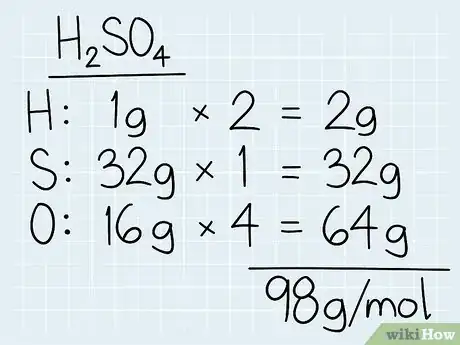 H₂SO₄
H: 1g × 2 = 2g
S: 32g × 1 = 32g
O: 16g × 4 = 64g
98g/mol
wikiHow